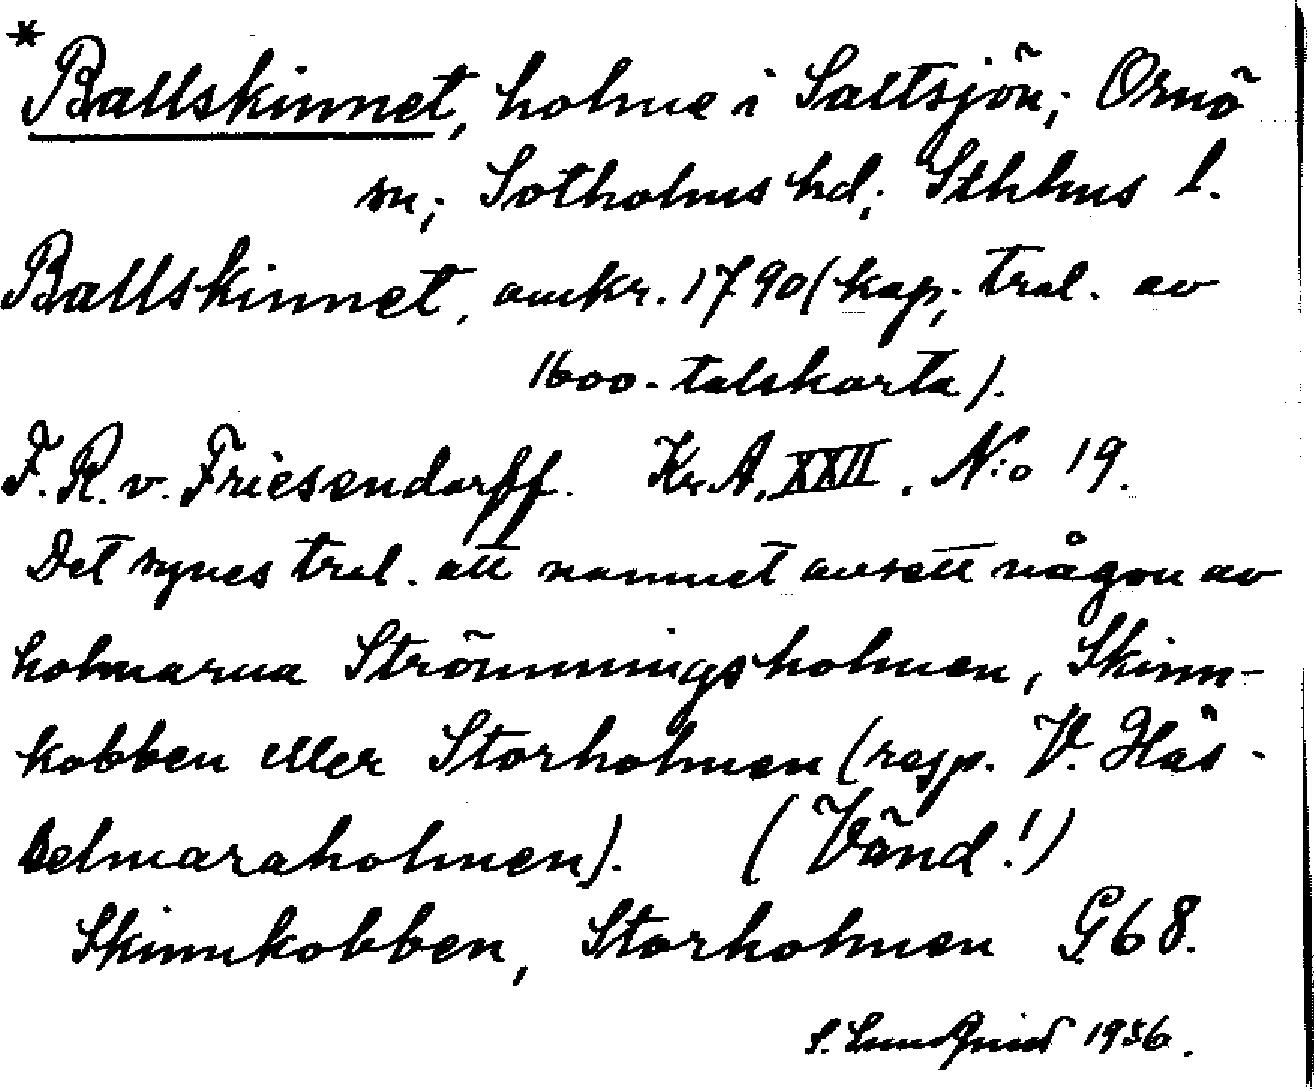 *Ballskinnet, holme i Saltsjön; Ornö
sn; Sotholms hd; Sthlms l.
Ballskinnet, omkr. 1790 (kap; trol. av
1600-talskarta).
F. R. v. Friesendorff. Kr.A. XXII. N:o 19.
Det synes trol. att namnet avsett någon av
holmarna Strömmingsholmen, Skinn-
kobben eller Storholmen (resp. V. Häs-
selmaraholmen). (Vänd!)
Skinnkobben, Storholmen G68.
S. 1936.